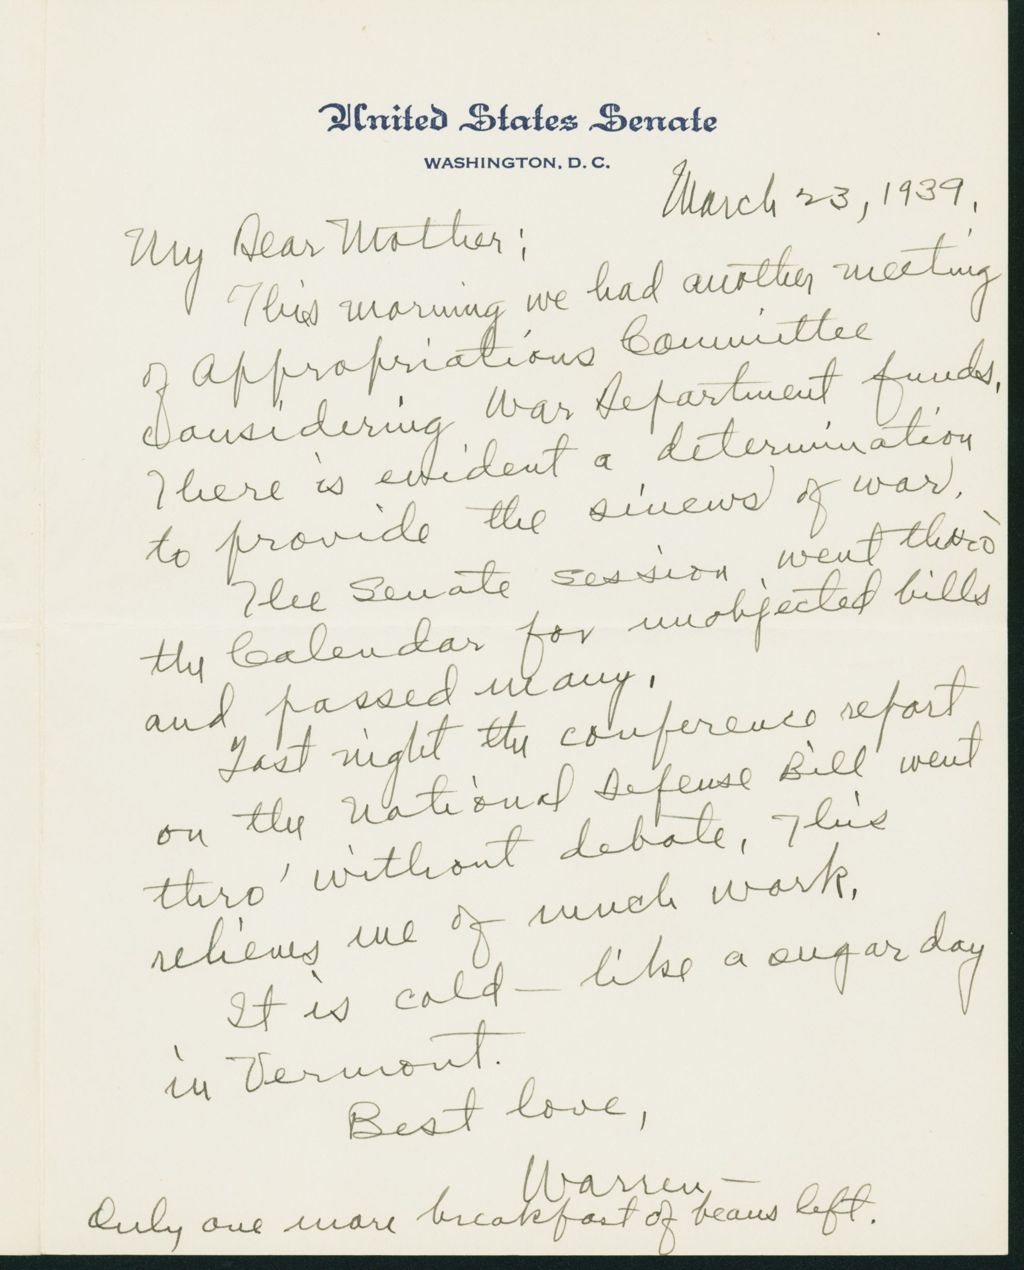 United States Senate
WASHINGTON, D. C.
March 23, 1939.
My Dear Mother:
This morning we had another meeting
of Appropriations Committee
considering War Department funds.
There is evident a determination
to provide the sinews of war.
The Senate session went thro'
the Calendar for unobjected bills
and passed many.
Last night the conference report
on the National Defense Bill went
thro' without debate. This
relieves me of much work.
It is cold — like a sugar day
in Vermont.
Best love,
Warren —
Only one more breakfast of beans left.